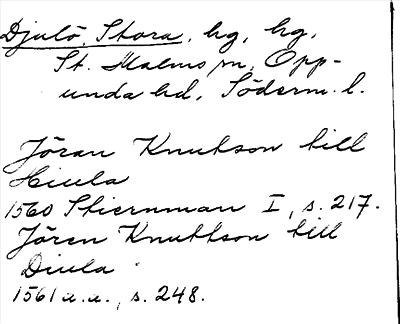 Djulö, Stora, hg, hg,
St. Malms sn, Opp-
unda hd, Söderm. l.
Jöran Knutson till
Hiula
1560 Stiernman I, s. 217.
Jören Knuttson till
Diula
1561 a.a., s. 248.